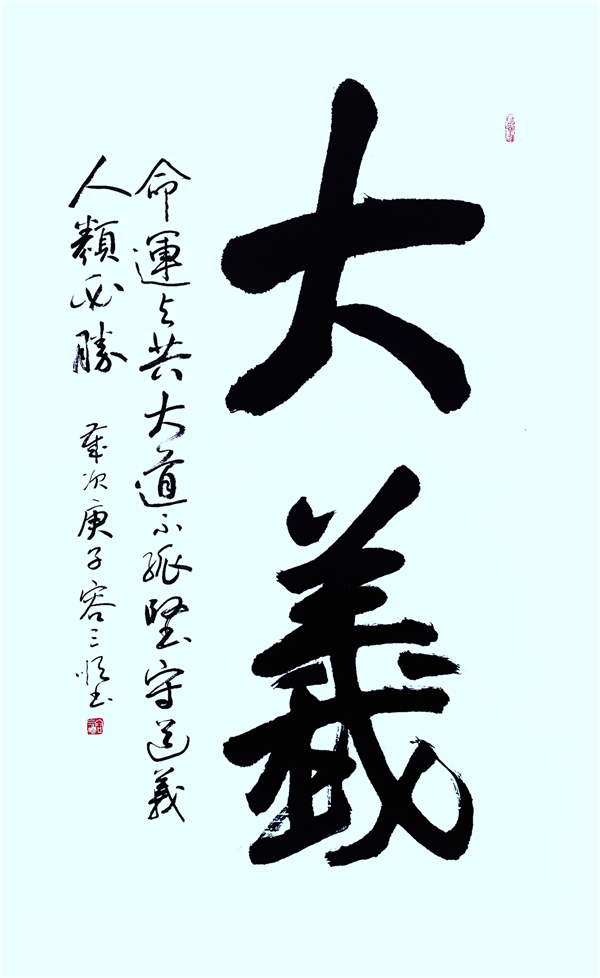 大義
命運与共大道不孤堅守道義
人類必勝
歲次庚子容三惟書